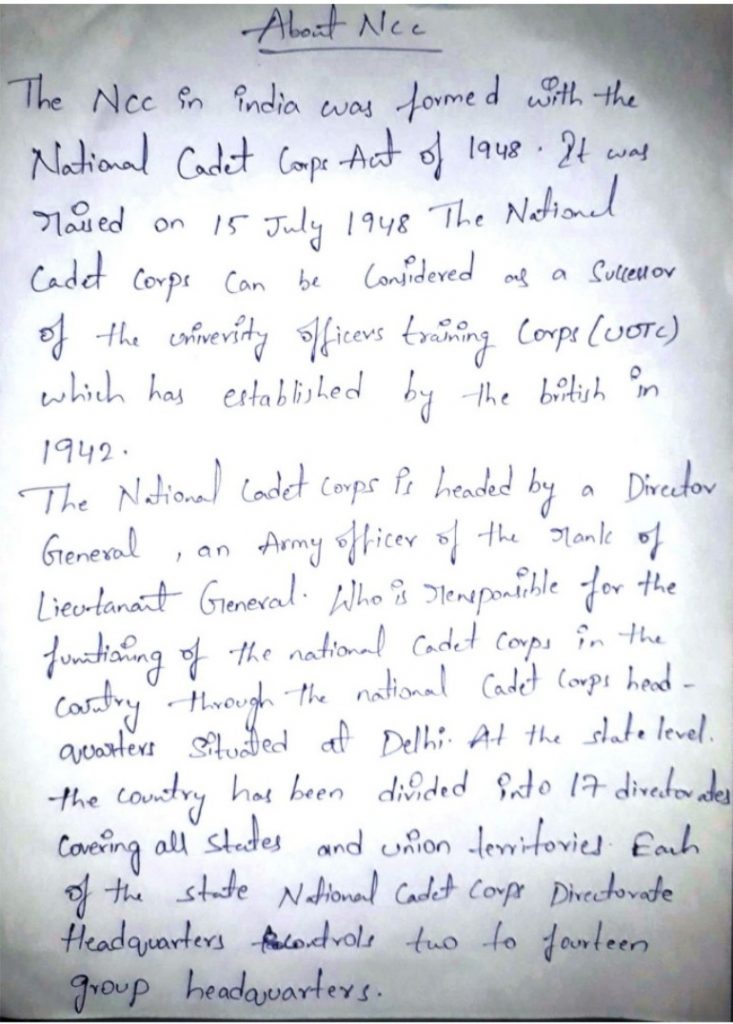 About Ncc
The Ncc in india was formed with the
National Cadet Corps Act of 1948. It was
raised on 15 July 1948 The National
Cadet Corps Can be Considered as a Successor
of the university officers training Corps (UOTC)
which has established by the british in
1942.
The National Cadet Corps is headed by a Director
General, an Army officer of the rank of
Lieutanant General. Who is responsible for the
functioning of the national Cadet Corps in the
Country through the national Cadet Corps head-
quarters Situated at Delhi. At the state level.
the country has been divided into 17 directorates
Covering all States and union territories. Each
of the state National Cadet Corps Directorate
Headquarters controls two to fourteen
group headquarters.